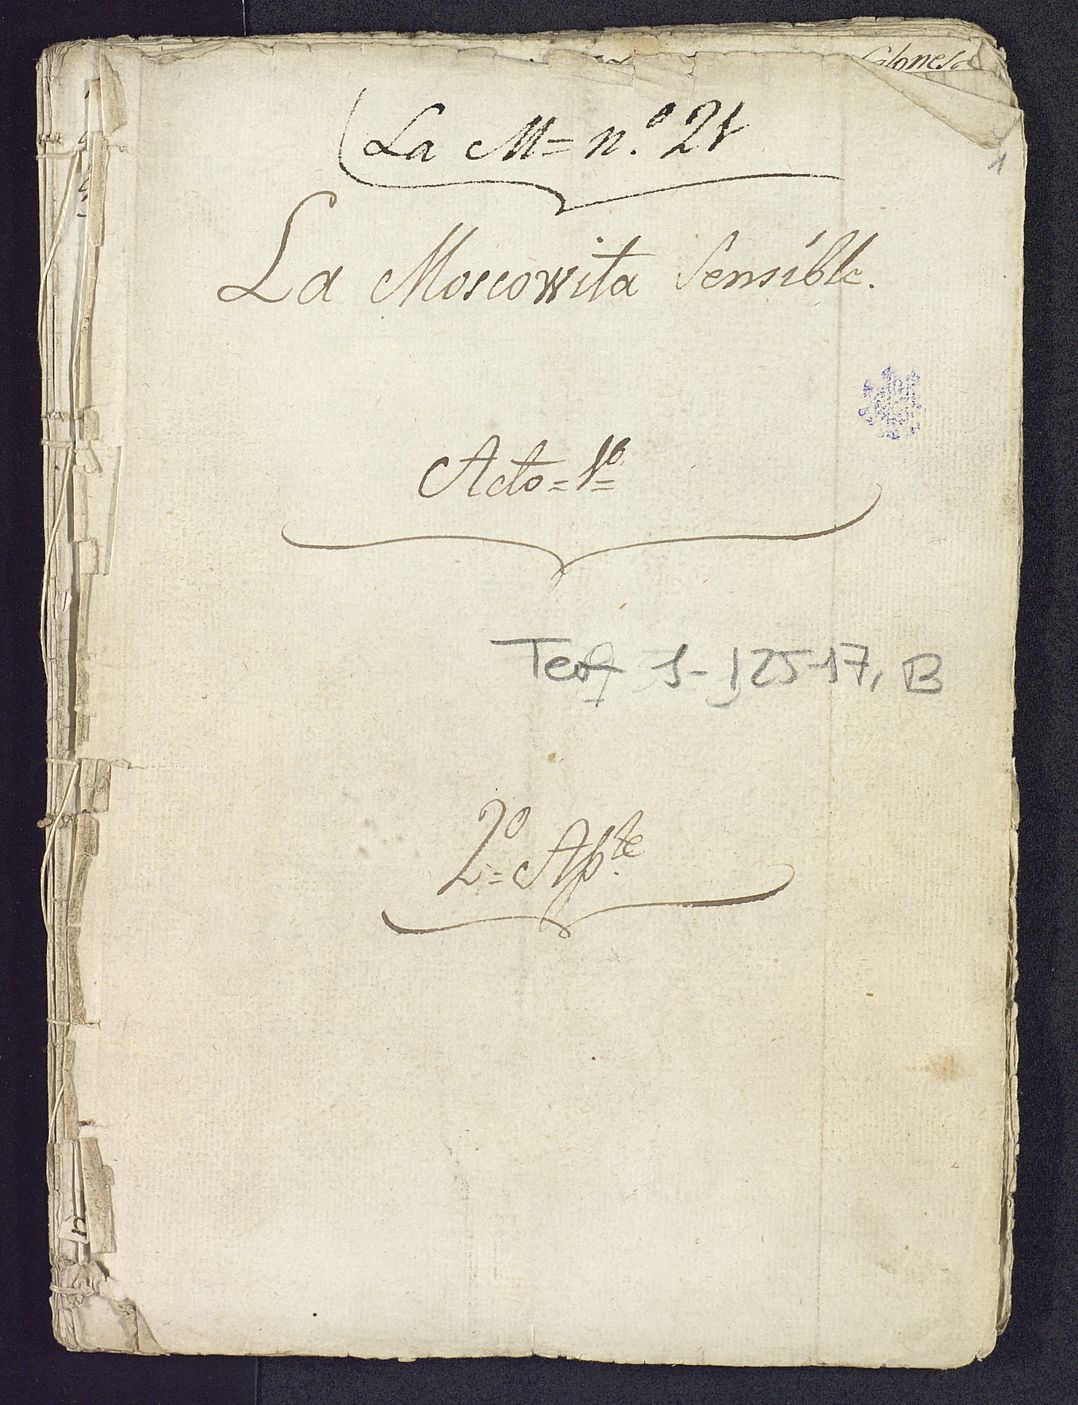 La M= n.º 21
1
La Moscowita Sensible.
Acto=1º=
Tea 1-125-17, B
2º= Ap.te